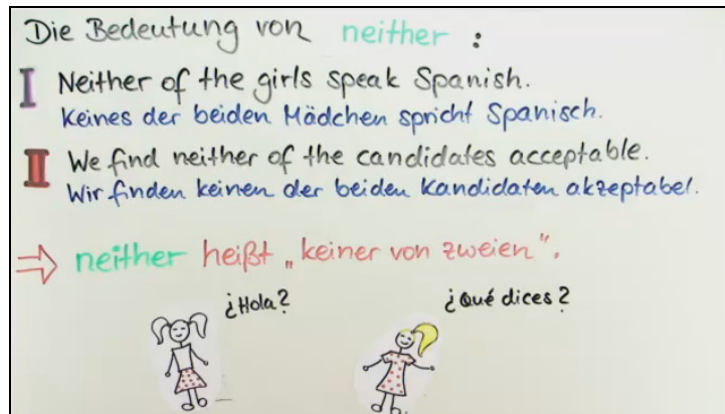 Die Bedeutung von neither :
I Neither of the girls speak Spanish.
Keines der beiden Mädchen spricht Spanisch.
II We find neither of the candidates acceptable.
Wir finden keinen der beiden Kandidaten akzeptabel.
⇒ neither heißt „keiner von zweien".
¿Hola? ¿Qué dices?